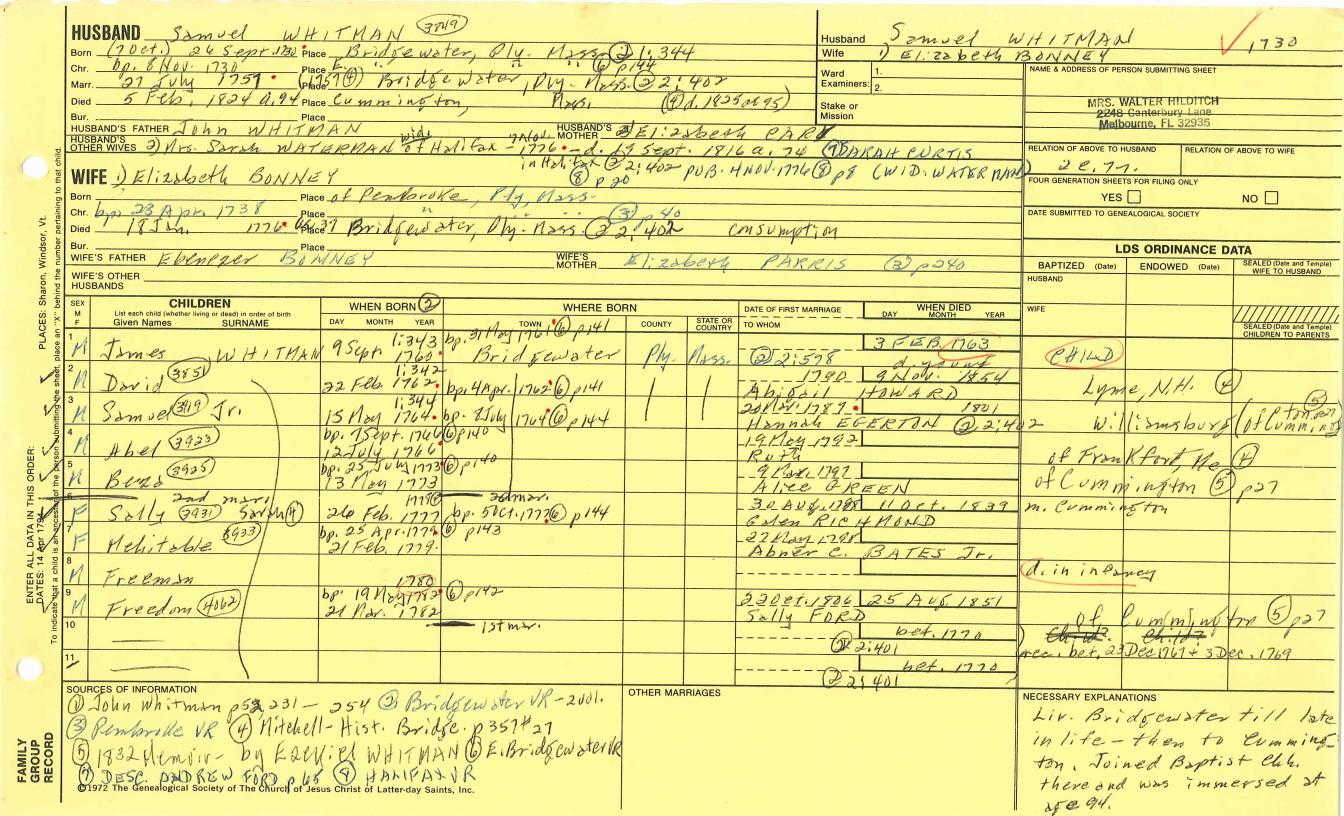 HUSBAND Samuel WHITMAN 3849
Born (7 Oct.) 26 Sept. 1730 Place Bridgewater, Ply. Mass. ② 1:344
Chr. bp. 8 Nov. 1730 Place E. " " " ⑥ p144
Marr. 27 July 1757 (1757④) Place Bridgewater, Ply. Mass. ② 2:402
Died 5 Feb. 1824 a.94 Place Cummington, Mass. (④ d. 1825 a 95)
Bur. Place
HUSBAND'S FATHER John WHITMAN HUSBAND'S MOTHER Elizabeth PARK
HUSBAND'S OTHER WIVES 2) Mrs. Sarah WATERMAN wid. of Halifax - 7 Nov. 1776 - d. 19 Sept. 1816 a. 74 SARAH CURTIS
in Halifax ② 2:402 PUB. 4 NOV. 1776 ⑧ p8 (WID. WATERMAN)
⑧ p20
WIFE 1) Elizabeth BONNEY
Born Place of Pembroke, Ply, Mass.
Chr. bp. 23 Apr. 1738 Place " " " ③ p40
Died 18 Jan. 1776 Place Bridgewater, Ply. Mass. ② 2:402 consumption
Bur. Place
WIFE'S FATHER Ebenezer BONNEY WIFE'S MOTHER Elizabeth PARRIS ③ p240
WIFE'S OTHER HUSBANDS
Husband Samuel WHITMAN 1730
Wife 1) Elizabeth BONNEY
Ward Examiners: 1.
2.
Stake or Mission
NAME & ADDRESS OF PERSON SUBMITTING SHEET
MRS. WALTER HILDITCH
2248 Canterbury Lane
Melbourne, FL 32935
RELATION OF ABOVE TO HUSBAND RELATION OF ABOVE TO WIFE
FOUR GENERATION SHEETS FOR FILING ONLY
YES NO
DATE SUBMITTED TO GENEALOGICAL SOCIETY
LDS ORDINANCE DATA
BAPTIZED (Date) ENDOWED (Date) SEALED (Date and Temple) WIFE TO HUSBAND
HUSBAND
WIFE
SEALED (Date and Temple) CHILDREN TO PARENTS
SEX M F CHILDREN WHEN BORN ② WHERE BORN DATE OF FIRST MARRIAGE WHEN DIED
List each child (whether living or dead) in order of birth
Given Names SURNAME DAY MONTH YEAR TOWN COUNTY STATE OR COUNTRY TO WHOM DAY MONTH YEAR
1 M James WHITMAN 1:343 9 Sept. 1760 bp. 31 May 1761 ⑥ p141 Bridgewater Ply. Mass. 3 FEB. 1763 d. young CHILD
2 M David 3851 1:342 22 Feb. 1762 bp. 4 Apr. 1762 ⑥ p141 ② 2:578 1780 Abigail HOWARD 9 Nov. 1854 Lyme, N.H. ④
3 M Samuel Jr. 1:344 15 May 1764 bp. 8 July 1764 ⑥ p144 1787 Hannah EGERTON ② 2:402 1801 Williamsburg
4 M Abel 3923 bp. 7 Sept. 1766 ⑥ p140 12 July 1766 19 May 1792 Ruth of Frankfort, Me ④
5 M Benj. 3925 bp. 25 July 1773 ⑥ p140 13 May 1773 1797 Alice GREEN of Cummington ⑤ p27
2nd marr. 2d mar.
6 F Sally 3931 Sarah ④ 26 Feb. 1777 bp. 5 Oct. 1777 ⑥ p144 30 Aug. 1798 RICHMOND 11 Oct. 1839 m. Cummington
7 F Mehitable 3933 bp. 25 Apr. 1779 ⑥ p143 21 Feb. 1779 27 May 1798 Abner C. BATES Jr.
8 M Freeman 1780 d. in infancy
9 M Freedom 4062 bp. 19 May 1782 ⑥ p142 21 Mar. 1782 22 Oct. 1806 Sally FORD 25 Aug. 1851 of Cummington ⑤ p27
1st mar.
10 ② 2:401 bet. 1770 rec. bet. 23 Dec 1767 + 3 Dec. 1769
11 ② 2:401 bet. 1770
SOURCES OF INFORMATION
① John Whitman 231 - 254 ② Bridgewater VR - 2001.
③ Pembroke VR ④ Mitchell - Hist. Bridge. p357 #27
⑤ 1832 Memoir - by Ezekiel WHITMAN ⑥ E. Bridgewater VR
⑦ DESC. ANDREW FORD p 65 ⑧ HALIFAX VR
©1972 The Genealogical Society of The Church of Jesus Christ of Latter-day Saints, Inc.
OTHER MARRIAGES
NECESSARY EXPLANATIONS
Liv. Bridgewater till late
in life - then to Cumming-
ton. Joined Baptist Chh.
there and was immersed at
age 94.
FAMILY GROUP RECORD
ENTER ALL DATA IN THIS ORDER:
DATES: 14 Apr 179
PLACES: Sharon, Windsor, Vt.